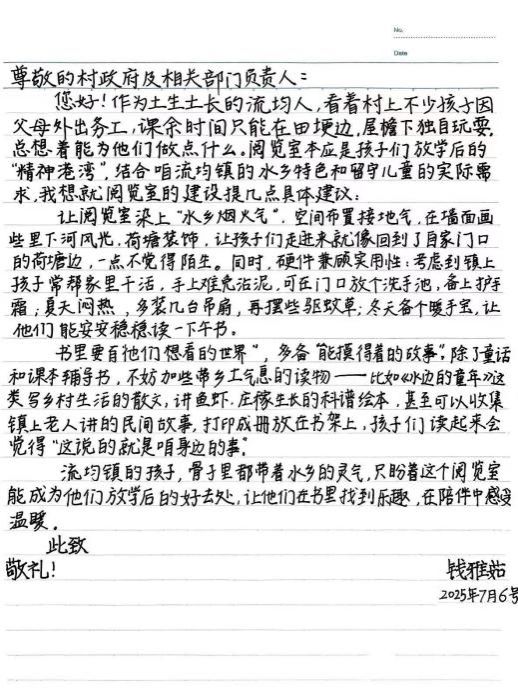 No.
Date
尊敬的村政府及相关部门负责人：
您好！作为土生土长的流均人，看着村上不少孩子因
父母外出务工，课余时间只能在田埂边，屋檐下独自玩耍。
总想着能为他们做点什么。阅览室本应是孩子们放学后的
“精神港湾”，结合咱流均镇的水乡特色和留守儿童的实际需
求，我想就阅览室的建设提几点具体建议：
让阅览室染上“水乡烟火气”，空间布置接地气，在墙面画
些里下河风光、荷塘装饰，让孩子们走进来就像回到了自家门口
的荷塘边，一点不觉得陌生。同时，硬件兼顾实用性：考虑到镇上
孩子常帮家里干活，手上难免沾泥，可在门口放个洗手池，备上护手
霜；夏天闷热，多装几台吊扇，再摆些驱蚊草；冬天备个暖手宝，让
他们能安安稳稳读一下午书。
书里要有他们想看的世界”，多备“能摸得着的故事”。除了童话
和课本辅导书，不妨加些带乡土气息的读物——比如《水边的童年》这
类写乡村生活的散文，讲鱼虾、庄稼生长的科谱绘本，甚至可以收集
镇上老人讲的民间故事，打印成册放在书架上，孩子们读起来会
觉得“这说的就是咱身边的事”。
流均镇的孩子，骨子里都带着水乡的灵气，只盼着这个阅览室
能成为他们放学后的好去处，让他们在书里找到乐趣，在陪伴中感受
温暖。
此致
敬礼！
钱雅茹
2025年7月6号